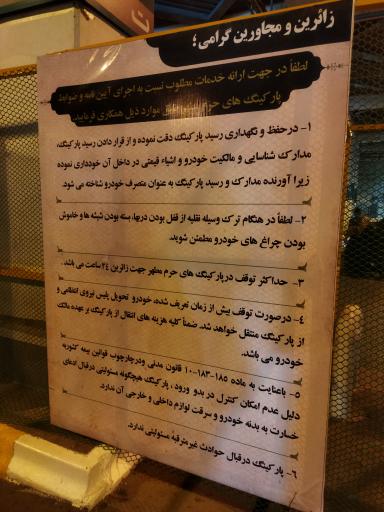 زائرین و مجاورین گرامی؛
لطفاً در جهت ارائه خدمات مطلوب نسبت به اجرای آیین نامه و ضوابط
پارکینگ های حرم موارد ذیل همکاری فرمایید.
۱- درحفظ و نگهداری رسید پارکینگ دقت نموده و از قرار دادن رسید پارکینگ،
مدارک شناسایی و مالکیت خودرو و اشیاء قیمتی در داخل آن خودداری نموده
زیرا آورنده مدارک و رسید پارکینگ به عنوان متصرف خودرو شناخته می شود.
۲- لطفاً در هنگام ترک وسیله نقلیه از قفل بودن دربها، بسته بودن شیشه ها و خاموش
بودن چراغ های خودرو مطمئن شوید.
۳- حداکثر توقف درپارکینگ های حرم مطهر جهت زائرین ۲۴ ساعت می باشد.
۴- درصورت توقف بیش از زمان تعریف شده، خودرو تحویل پلیس نیروی انتظامی و
از پارکینگ منتقل خواهد شد. ضمناً کلیه هزینه های انتقال از پارکینگ بر عهده مالک
خودرو می باشد.
۵- باعنایت به ماده ۱۸۵-۱۸۳-۱۰ قانون مدنی ودرچارچوب قوانین بیمه کشور،به
دلیل عدم امکان کنترل در بدو ورود، پارکینگ هیچگونه مسئولیتی درقبال ادعای
خسارت به بدنه خودرو و سرقت لوازم داخلی و خارجی آن ندارد.
۶- پارکینگ درقبال حوادث غیرمترقبه مسئولیتی ندارد.